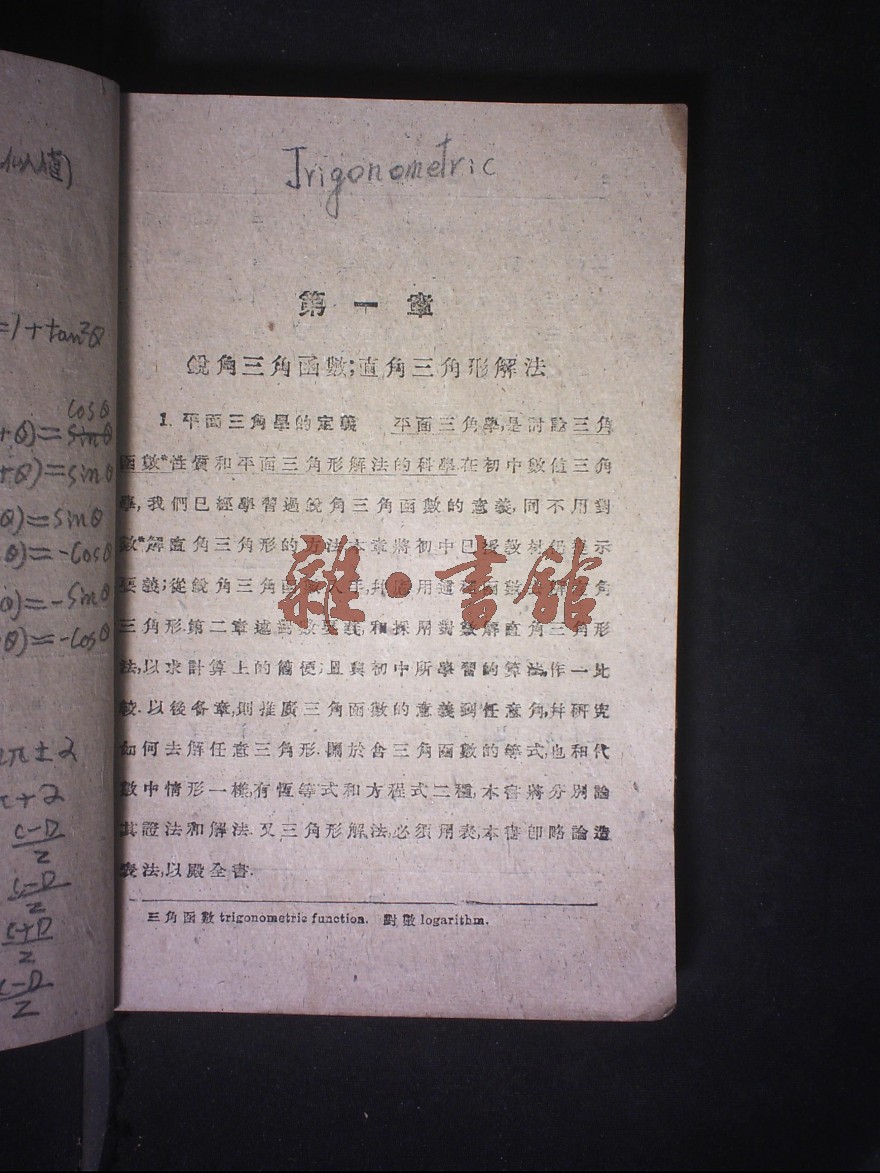 值)
=1+tan²θ
cosθ
+θ)=sinθ
+θ)=sinθ
θ)=sinθ
θ)=-cosθ
θ)=-sinθ
θ)=-cosθ
Trigonometric
第一章
銳角三角函數;直角三角形解法
1. 平面三角學的定義 平面三角學,是討論三角
函數*性質和平面三角形解法的科學.在初中數值三角
學,我們已經學習過銳角三角函數的意義,同不用對
數*解直角三角形的方法.本章將初中已授教材仍提示
要義;從銳角三角函數入手,
三角形.第二章述對數要義,和採用對數解直角三角形
法,以求計算上的簡便;且與初中所學習的算法,作一比
較.以後各章,則推廣三角函數的意義到任意角,幷研究
如何去解任意三角形.關於含三角函數的等式,也和代
數中情形一樣,有恆等式和方程式二種,本書將分別論
其證法和解法.又三角形解法,必須用表,本書卽略論造
表法,以殿全書.
三角函數 trigonometric function. 對數 logarithm.
雜·書館